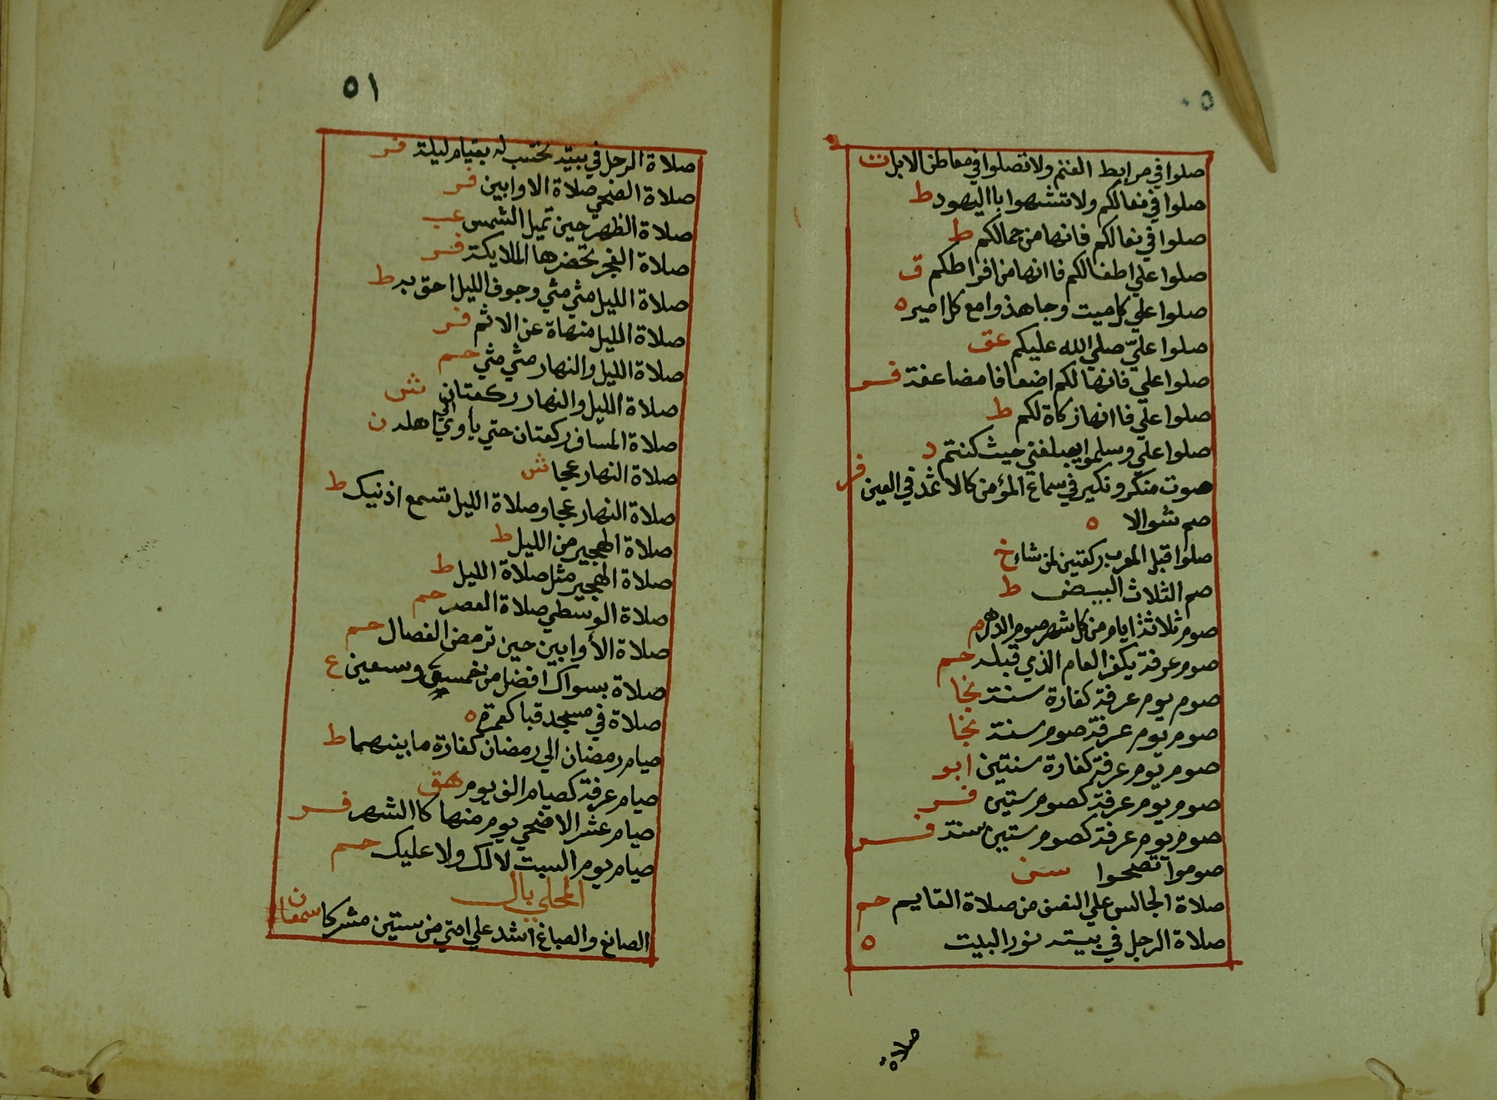 ٥٠
صلوا في مرابط الغنم ولا تصلوا في معاطن الابل ت
صلوا في نعالكم ولا تتشبهوا باليهود ط
صلوا في نعالكم فانها من جمالكم ط
صلوا علي اطفالكم فاانها من افراطكم ق
صلوا علي كل ميت وجاهدوا مع كل امير ه
صلوا عليّ صلي الله عليكم عق
صلوا علي فانها لكم اضعافا مضاعفة فر
صلوا علي فاانها زكاة لكم ط
صلوا علي وسلموا حيث كنتم د
صوت منكر ونكير في سماع المؤمن كالاثمد في العين فر
صم شوالا ه
صلوا قبل المغرب ركعتين لمن شاء خ
صم الثلاث البيض ط
صوم ثلاثة ايام من كل شهر صوم الدهر م
صوم عرفة يكفر العام الذي قبله حم
صوم يوم عرفة كفارة سنة نجا
صوم يوم عرفة صوم سنة نجا
صوم يوم عرفة كفارة سنتين ابو
صوم يوم عرفة كصوم ستين فر
صوم يوم عرفة كصوم ستين سنة فر
صوموا تصحوا سن
صلاة الجالس علي النصف من صلاة القايم حم
صلاة الرجل في بيته نور البيت ه
صلاة
٥١
صلاة الرجل في بيته تحتسب له بقيام ليلة فر
صلاة الضحي صلاة الاوابين فر
صلاة الظهر حين تميل الشمس عب
صلاة الفجر تحضرها الملايكة فر
صلاة الليل مثي مثي وجوف الليل احق به ط
صلاة الليل منهاة عن الاثم فر
صلاة الليل والنهار مثي مثي حم
صلاة الليل والنهار ركعتان ش
صلاة المسافر ركعتان حتي يأوي الي اهله ن
صلاة النهار عجما ش
صلاة النهار عجما وصلاة الليل تسمع اذنيك ط
صلاة الهجير من الليل ط
صلاة الهجير مثل صلاة الليل ط
صلاة الوسطي صلاة العصر حم
صلاة الأوابين حين ترمض الفصال حم
صلاة بسواك افضل من وسبعين ع
صلاة في مسجد قبا كعمرة ه
صيام رمضان الي رمضان كفارة ما بينهما ط
صيام عرفة كصيام الف يوم هق
صيام عشر الاضحي يوم منها كاالشهر فر
صيام يوم السبت لا لك ولا عليك حم
المحلي بال
الصانع والصباغ اشد علي امتي من ستين مشركا سمعان